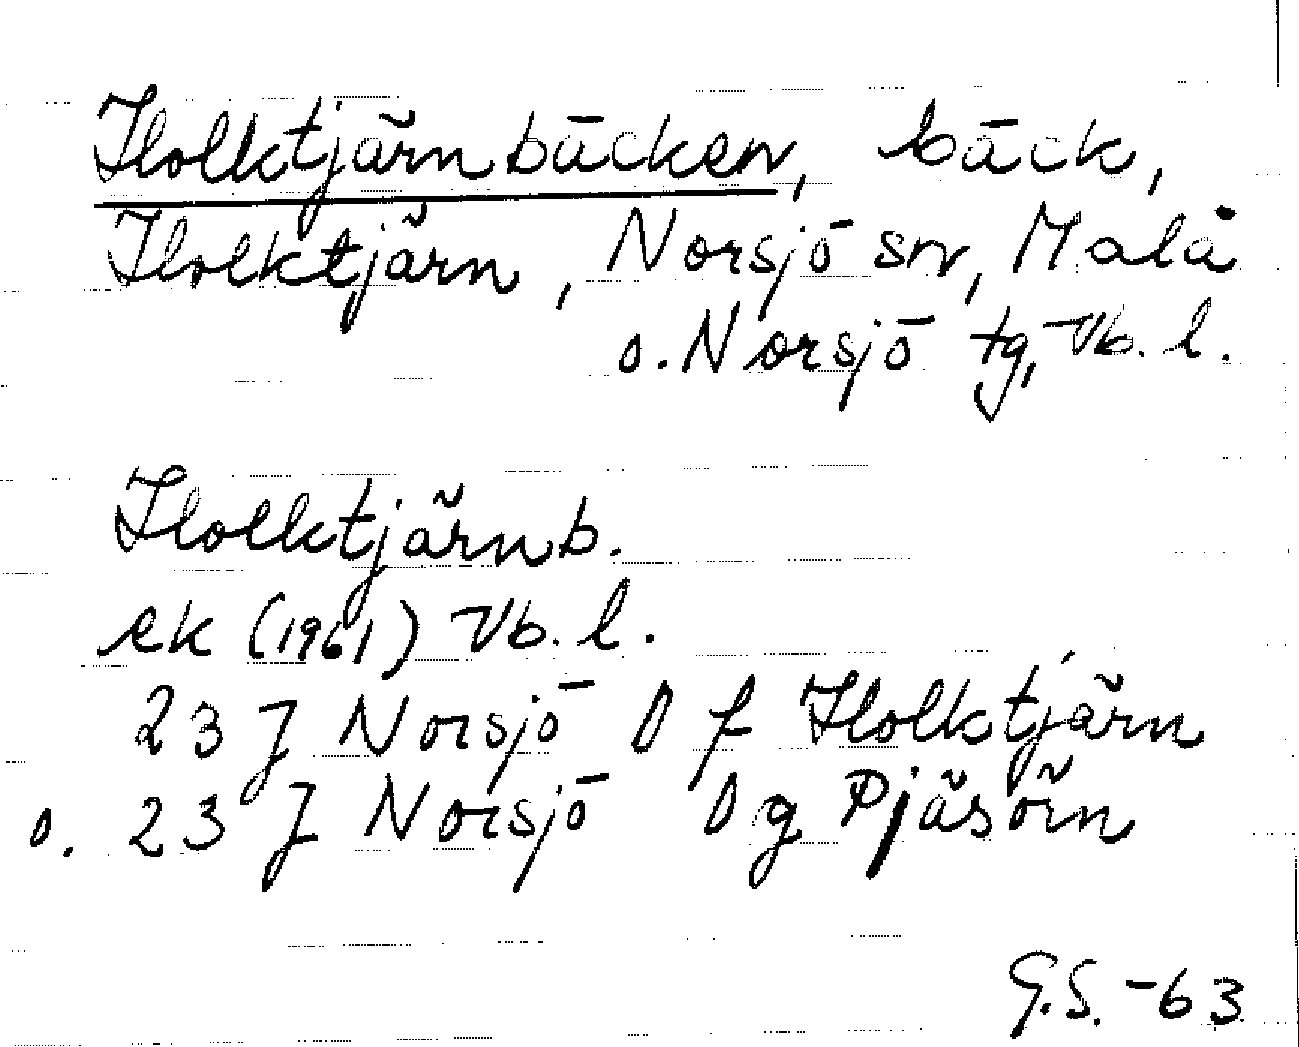 Holktjärnbäcken, bäck,
Holktjärn, Norsjö sn, Malå
o. Norsjö tg, Vb. l.
Holktjärnb.
ek (1961) Vb. l.
23 J Norsjö 0 f Holktjärn
o. 23 J Norsjö 0 g Pjäsörn
G.S. -63